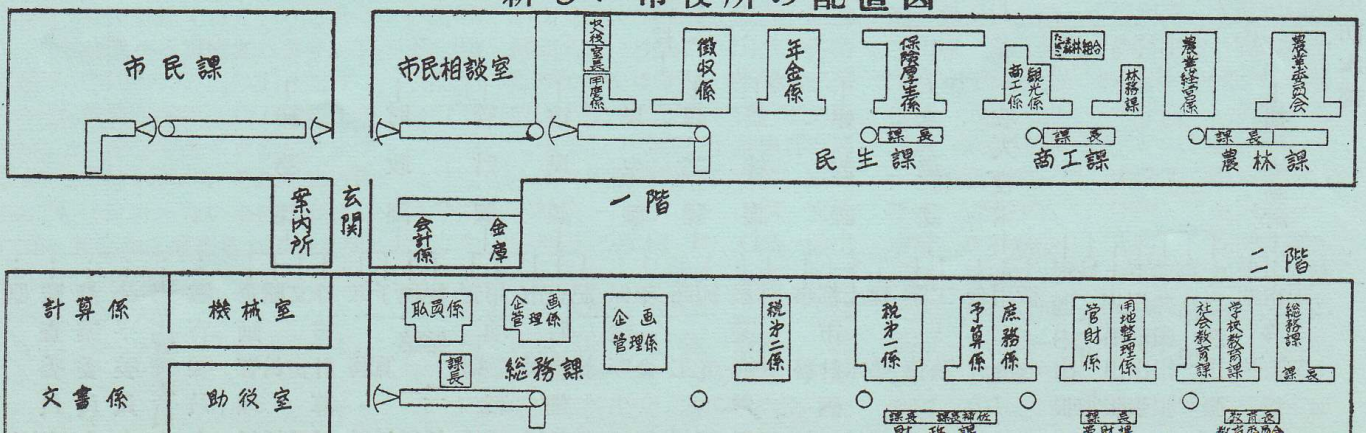 新しい市役所の配置図
市民課
市民相談室
収入役
室長
用度係
徴収係
年金係
保険厚生係
商工係
観光係
森林組合
林務課
農業経営係
農業委員会
課長
民生課
課長
商工課
課長
農林課
案内所
玄関
会計係
金庫
一階
二階
計算係
文書係
機械室
助役室
職員係
企画管理係
企画管理係
課長
総務課
税第二係
税第一係
予算係
庶務係
管財係
用地整理係
社会教育課
学校教育課
総務課
課長
課長 課長補佐
財政課
課長
管財課
教育長
教育委員会